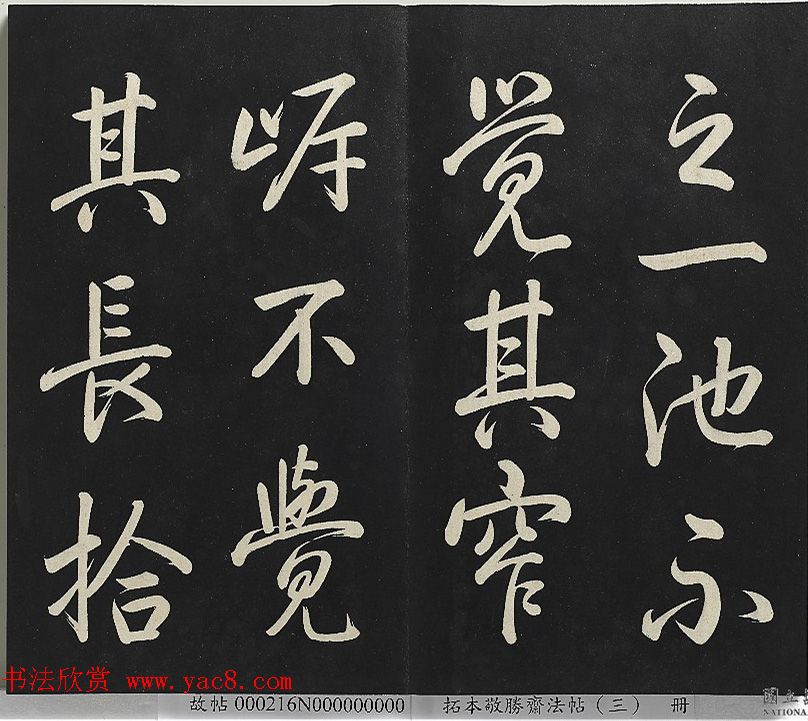 之一池不
覺其窄
岸不覺
其長拾
书法欣赏 www.yac8.com
故帖000216N000000000 拓本敬勝齋法帖（三） 册
國立
NATIONA